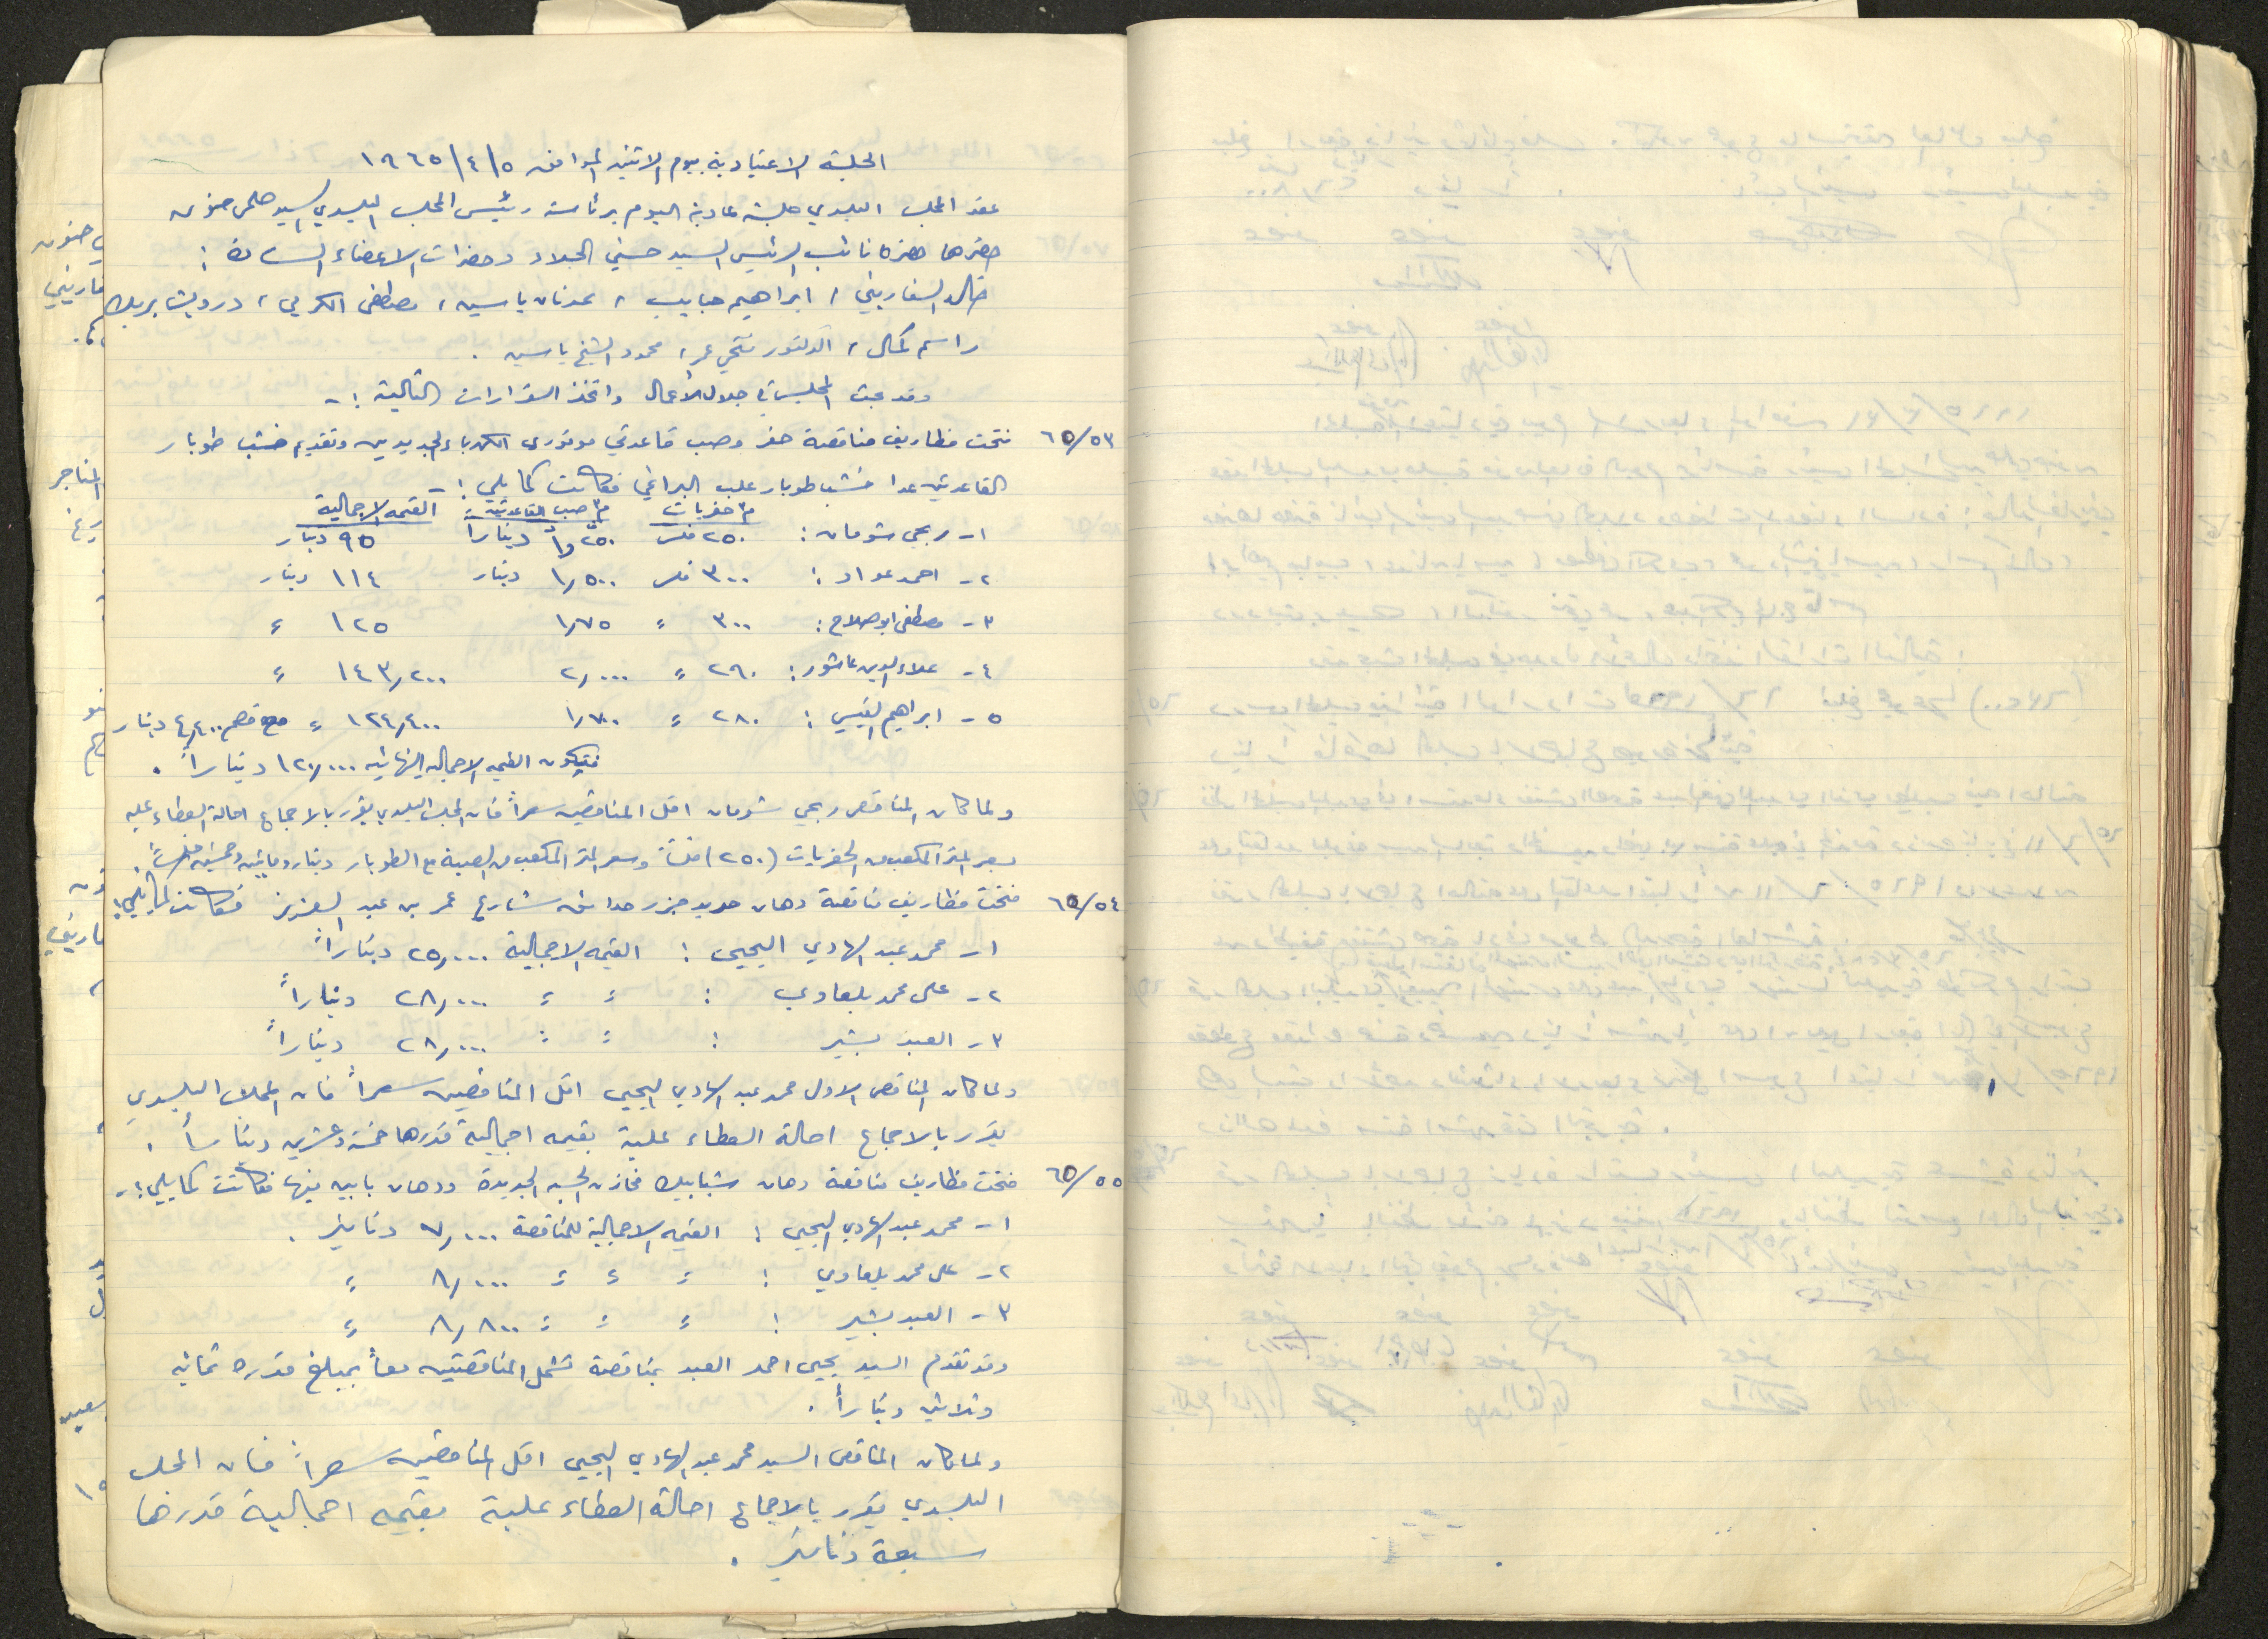 الجلسة الاعتيادية يوم الاثنين الموافق ١٩٦٥/٤/٥
عقد المجلس البلدي جلسة عادية اليوم برئاسة رئيس المجلس البلدي السيد حلمي حنون
حضرها حضرة نائب الرئيس السيد حسني الجلاد وحضرات الاعضاء السادة :
خالد السفاريني ، ابراهيم حبايب ، عدنان ياسين ، مصطفى الكرمي ، درويش بربك
راسم كمال ، الدكتور فتحي عمر ، محمود الشيخ ياسين .
وقد بحث المجلس في جدول الأعمال واتخذ القرارات التالية :-
٦٥/٥٣ فتحت مظاريف مناقصة حفر وصب قاعدتي موتوري الكهرباء الجديدين وتقديم خشب طوبار
القاعدتين عدا خشب طوبار علب البراغي فكانت كما يلي :-
م٣ حفريات م٣ صب القاعدتين القيمة الاجمالية
١- ربحي شومان : ٢٥٠ فلس ١,٢٥٠ ديناراً ٩٥ دينار
٢- احمد عواد : ٣٠٠ فلس ١,٥٠٠ دينار ١١٤ دينار
٣- مصطفى ابو صلاح : ٣٠٠ = ١,٧٥ ١٢٥ =
٤- علاء الدين عاشور : ٢٩٠ = ٢,٠٠٠ ١٤٣,٢٠٠ =
٥- ابراهيم القيسي : ٢٨٠ = ١,٧٠٠ ١٢٤,٤٠٠ = مع خصم ٤,٤٠٠ دينار
فتكون القيمة الاجمالية النهائية ١٢٠,٠٠٠ ديناراً .
ولما كان المناقص ربحي شومان اقل المناقصين سعراً فان المجلس البلدي يقرر بالاجماع احالة العطاء عليه
بسعر المتر المكعب من الحفريات (٢٥٠) فلساً وسعر المتر المكعب من الصبة مع الطوبار دينار ومايتين وخمسين فلساً .
٦٥/٥٤ فتحت مظاريف مناقصة دهان حديد جزر حدائق شارع عمر بن عبد العزيز فكانت كما يلي :
١- محمد عبد الهادي اليحيى : القيمة الاجمالية ٢٥,٠٠٠ ديناراً
٢- علي محمد بلعاوي : = = ٢٨,٠٠٠ ديناراً
٣- العبد بشير : = = ٢٨,٠٠٠ ديناراً
ولما كان المناقص الاول محمد عبد الهادي اليحيى اقل المناقصين سعراً فان المجلس البلدي
يقرر بالاجماع احالة العطاء عليه بقيمة اجمالية قدرها خمسة وعشرين ديناراً .
٦٥/٥٥ فتحت مظاريف مناقصة دهان شبابيك مخازن الحسبة الجديدة ودهان بابين فيها فكانت كما يلي :-
١- محمد عبد الهادي اليحيى : القيمة الاجمالية للمناقصة ٧,٠٠٠ دنانير .
٢- علي محمد بلعاوي : = = = ٨,٠٠٠ =
٣- العبد بشير : = = = ٨,٨٠٠ =
وقد تقدم السيد يحيى احمد العبد بمناقصة تشمل المناقصتين معاً بمبلغ قدره ثمانية
وثلاثين ديناراً .
ولما كان المناقص السيد محمد عبد الهادي اليحيى اقل المناقصين سعراً فان المجلس
البلدي يقرر بالاجماع احالة العطاء عليه بقيمة اجمالية قدرها
سبعة دنانير .